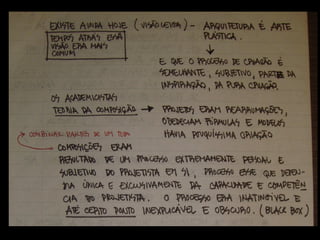 EXISTE AINDA HOJE (VISÃO LEIGA) - ARQUITETURA É ARTE
PLÁSTICA.
TEMPOS ATRÁS ESSA
VISÃO ERA MAIS
COMUM
E QUE O PROCESSO DE CRIAÇÃO É
SEMELHANTE, SUBJETIVO, PARTE DA
INSPIRAÇÃO, DA PURA CRIAÇÃO.
OS ACADEMICISTAS
TEORIA DA COMPOSIÇÃO → PROJETOS ERAM REARRUMAÇÕES,
OBEDECIAM FÓRMULAS E MODELOS
HAVIA POUQUÍSSIMA CRIAÇÃO
COMBINAR PARTES DE UM TODO
COMPOSIÇÕES ERAM
RESULTADO DE UM PROCESSO EXTREMAMENTE PESSOAL E
SUBJETIVO DO PROJETISTA EM SI, PROCESSO ESSE QUE DEPEN-
DIA ÚNICA E EXCLUSIVAMENTE DA CAPACIDADE E COMPETÊN
CIA DO PROJETISTA. O PROCESSO ERA INATINGÍVEL E
ATÉ CERTO PONTO INEXPLICÁVEL E OBSCURO. (BLACK BOX)